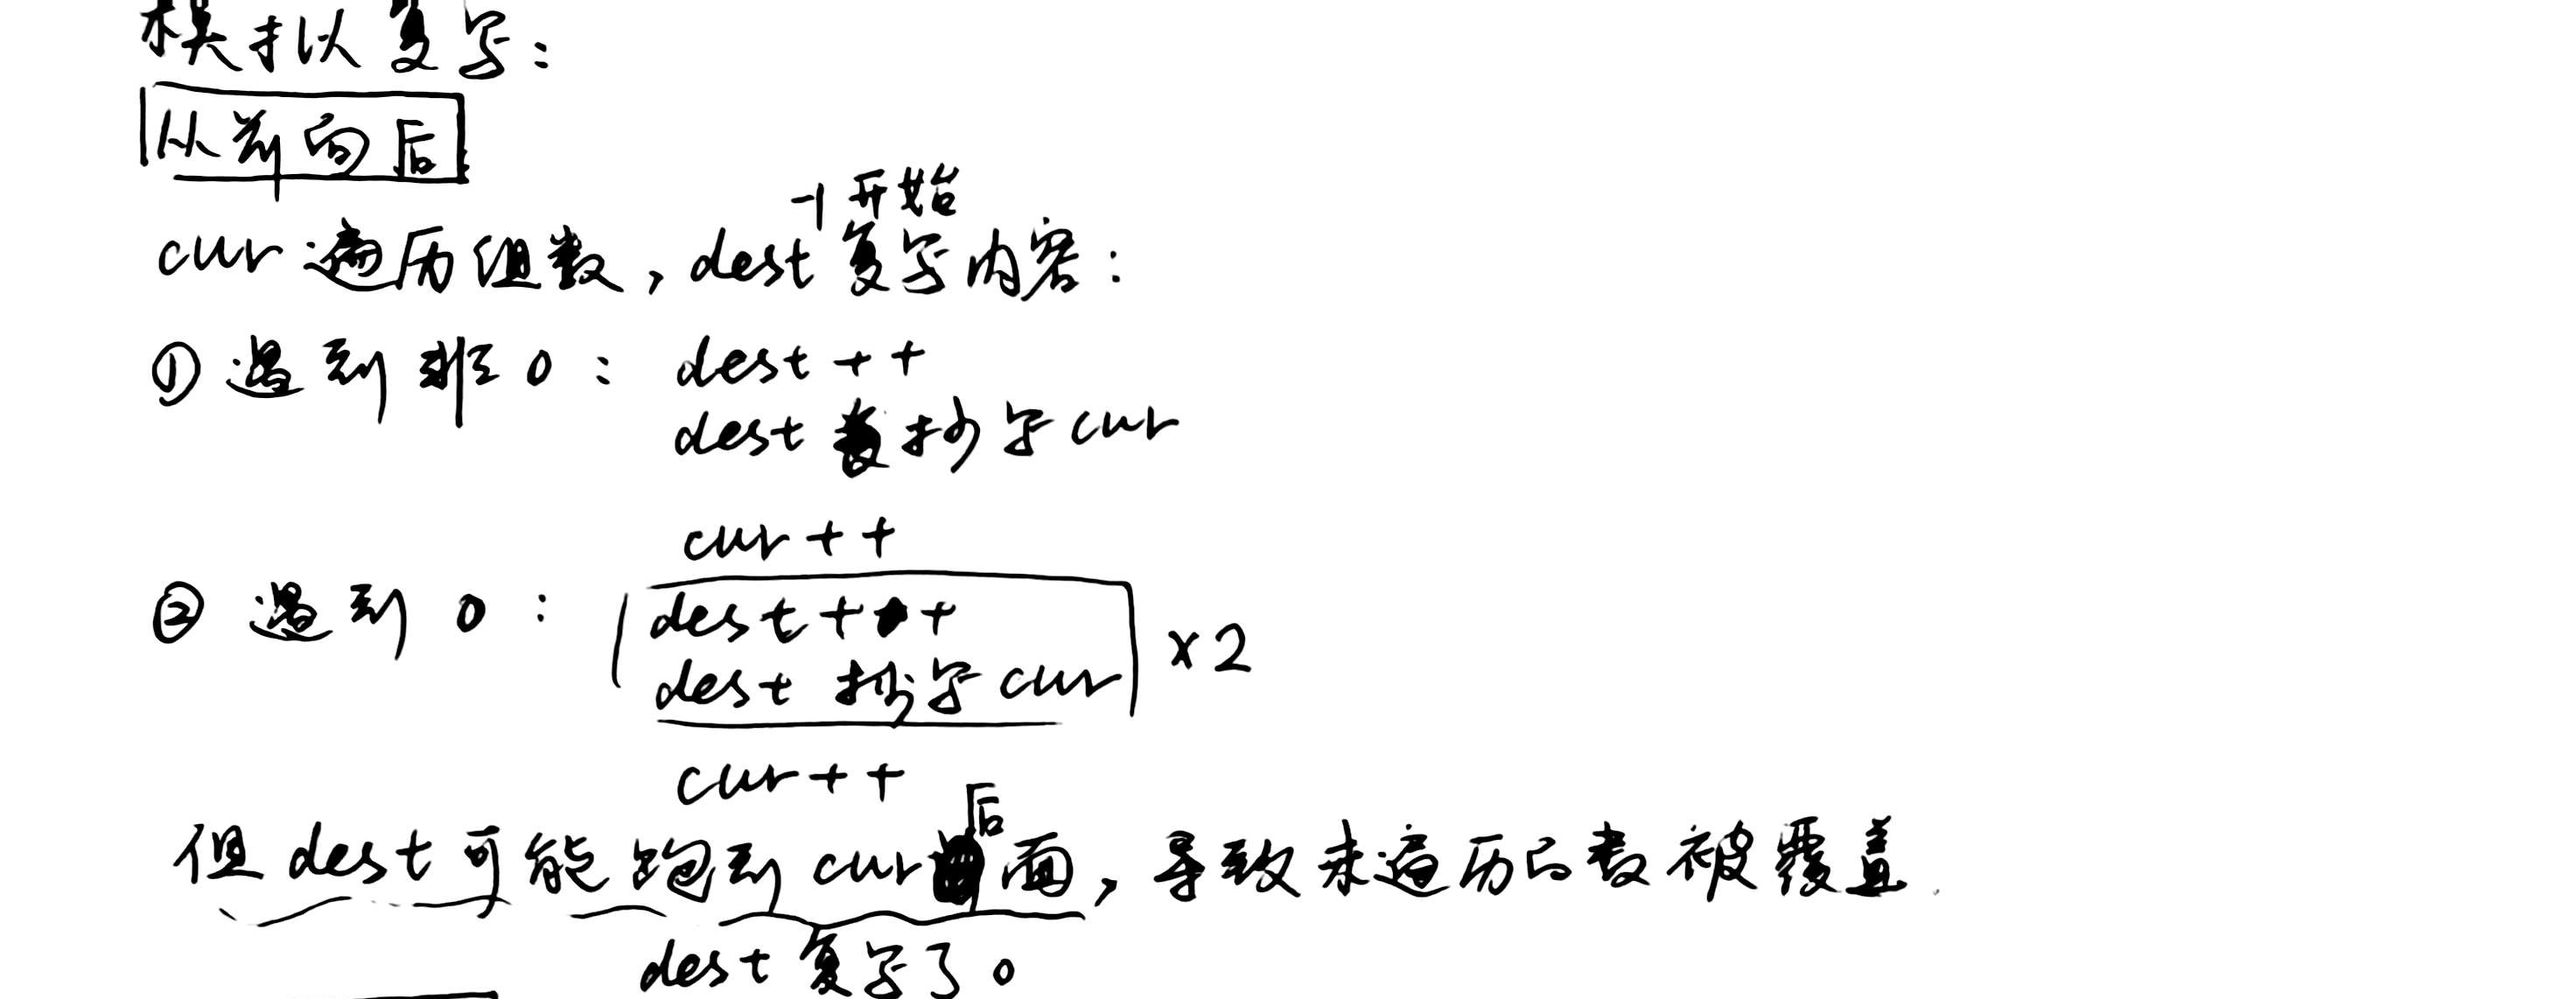 模拟复写：
从前向后
-1开始
cur遍历组数，dest复写内容：
①遇到非0： dest++
dest抄写cur
cur++
②遇到0： dest++
dest抄写cur ×2
cur++
后
但dest可能跑到cur面，导致未遍历的数被覆盖.
dest复写了0